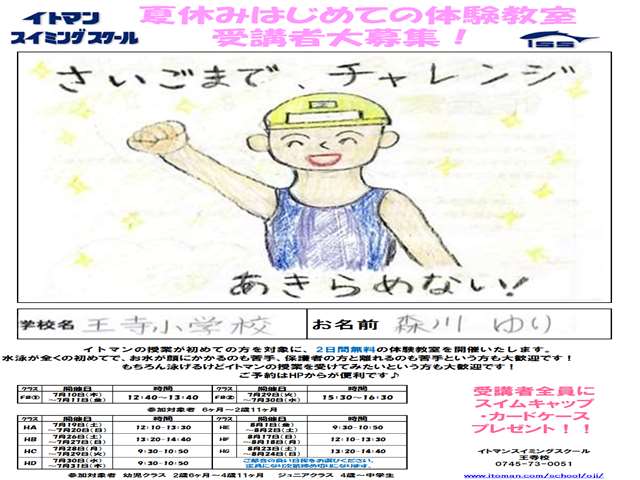 イトマン
スイミングスクール
夏休みはじめての体験教室
受講者大募集！
iss
さいごまで、チャレンジ
あきらめない!
学校名 王寺小学校 お名前 森川 ゆり
イトマンの授業が初めての方を対象に、2日間無料の体験教室を開催いたします。
水泳が全くの初めてで、お水が顔にかかるのも苦手、保護者の方と離れるのも苦手という方も大歓迎です！
もちろん泳げるけどイトマンの授業を受けてみたいという方も大歓迎です！
ご予約はHPからが便利です♪
クラス 開催日 時間 クラス 開催日 時間
7月10日(木) ～7月11日(金) 12:40～13:40 7月29日(火) ～7月30日(水) 15:30～16:30
参加対象者 6ヶ月～2歳11ヶ月
クラス 開催日 時間 クラス 開催日 時間
HA 7月19日(土) ～7月20日(日) 12:10-13:30 HE 8月1日(金) ～8月2日(土) 9:30-10:50
HB 7月26日(土) ～7月27日(日) 13:20-14:40 HF 8月17日(日) ～8月18日(月) 12:10-13:30
HC 7月28日(月) ～7月29日(火) 9:30-10:50 HG 8月23日(土) ～8月24日(日) 13:20-14:40
HD 7月30日(水) ～7月31日(木) 9:30-10:50
参加対象者 幼児クラス 2歳6ヶ月～4歳11ヶ月 ジュニアクラス 4歳～中学生
受講者全員に
スイムキャップ
・カードケース
プレゼント！！
イトマンスイミングスクール
王寺校
0745-73-0051
www.itoman.com/school/oji/